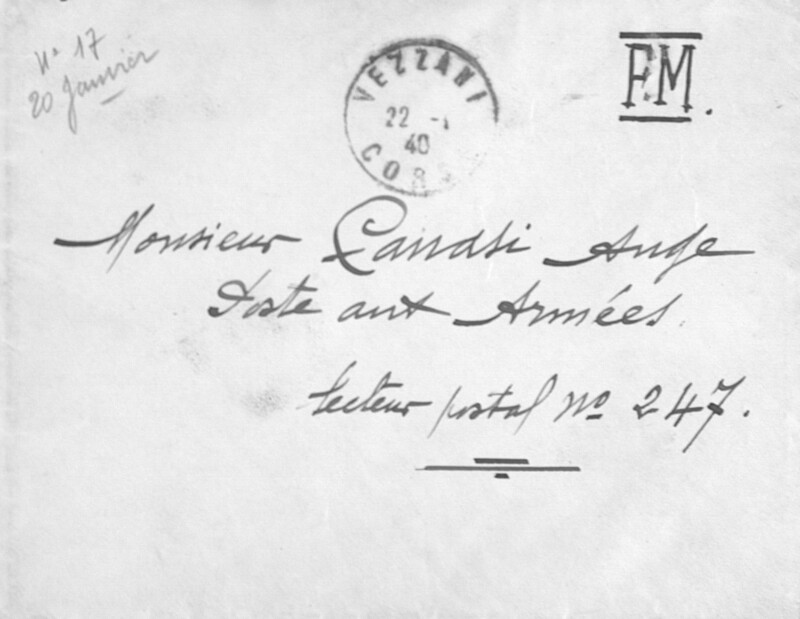 No 17
20 Janvier
VEZZANI
22 -1
40
CORS
F.M.
Monsieur Gandsi Ange
Poste aux Armées.
Secteur postal No 247.